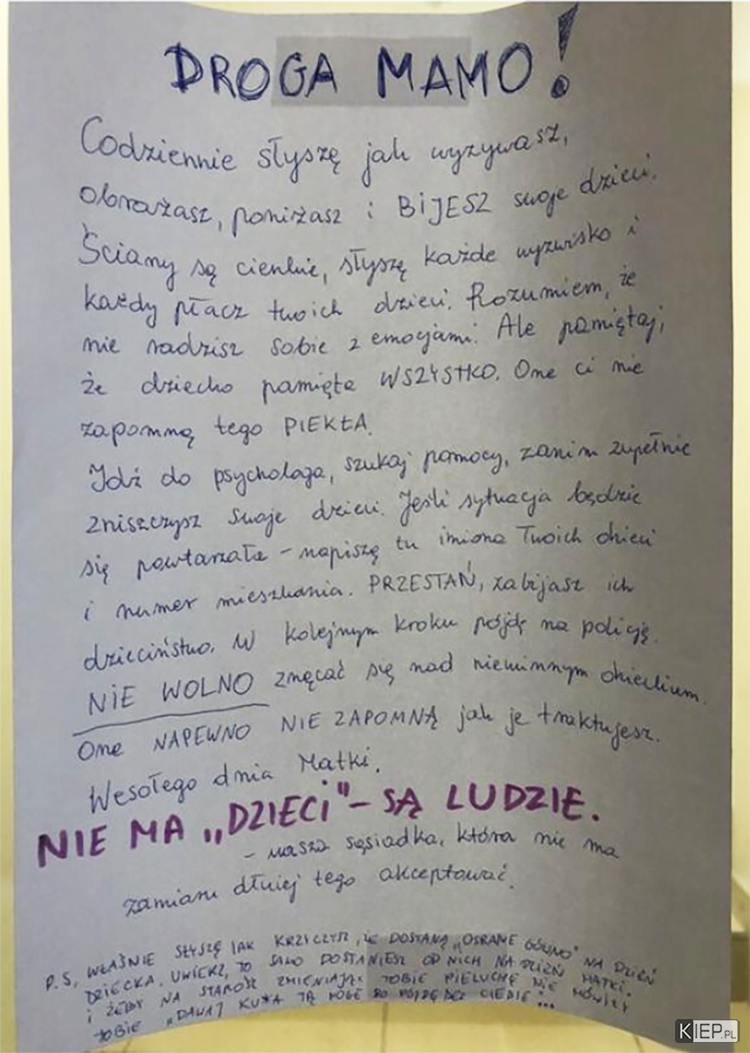 DROGA MAMO!
Codziennie słyszę jak wyzywasz,
obrażasz, poniżasz i BIJESZ swoje dzieci.
Ściany są cienkie, słyszę każde wyzwisko i
każdy płacz twoich dzieci. Rozumiem, że
nie radzisz sobie z emocjami. Ale pamiętaj,
że dziecko pamięta WSZYSTKO. One ci nie
zapomną tego PIEKŁA.
Idź do psychologa, szukaj pomocy, zanim zupełnie
zniszczysz swoje dzieci. Jeśli sytuacja będzie
się powtarzała - napiszę tu imiona Twoich dzieci
i numer mieszkania. PRZESTAŃ, zabijasz ich
dzieciństwo. W kolejnym kroku pójdę na policję.
NIE WOLNO znęcać się nad niewinnym dzieckiem.
One NAPEWNO NIE ZAPOMNĄ jak je traktujesz.
Wesołego dnia Matki.
NIE MA „DZIECI" - SĄ LUDZIE.
- wasza sąsiadka, która nie ma
zamiaru dłużej tego akceptować.
P.S. WŁAŚNIE SŁYSZĘ JAK KRZYCZYSZ, ŻE DOSTANĄ „OSRANE GÓWNO" NA DZIEŃ
DZIECKA. UWIERZ, TO SAMO DOSTANIESZ OD NICH NA DZIEŃ MATKI.
I ŻEBY NA STAROŚĆ ZMIENIAJĄC TOBIE PIELUCHĘ NIE MÓWILI
TOBIE „DAWAJ KU*A TĄ NOGĘ BO PÓJDĘ BEZ CIEBIE"...
KIEP.PL